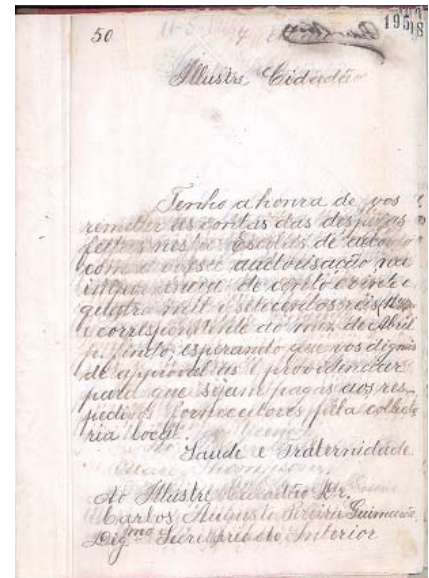 50
195
18
Illustre Cidadão
Tenho a honra de vos
remetter as contas das despezas
feitas nesta Escola de
com a vossa auctorisação na
importancia de cento e vinte e
quatro mil e setecentos réis
e correspondente ao mez de Abril
p. findo, esperando que vos digneis
de approval-as e providenciar
para que sejam pagas aos res-
pectivos fornecedores pela collecto-
ria local.
Saude e Fraternidade
Ao Illustre Cidadão Dr.
Carlos Augusto Pereira Guimarães
Dig.mo Secretario do Interior